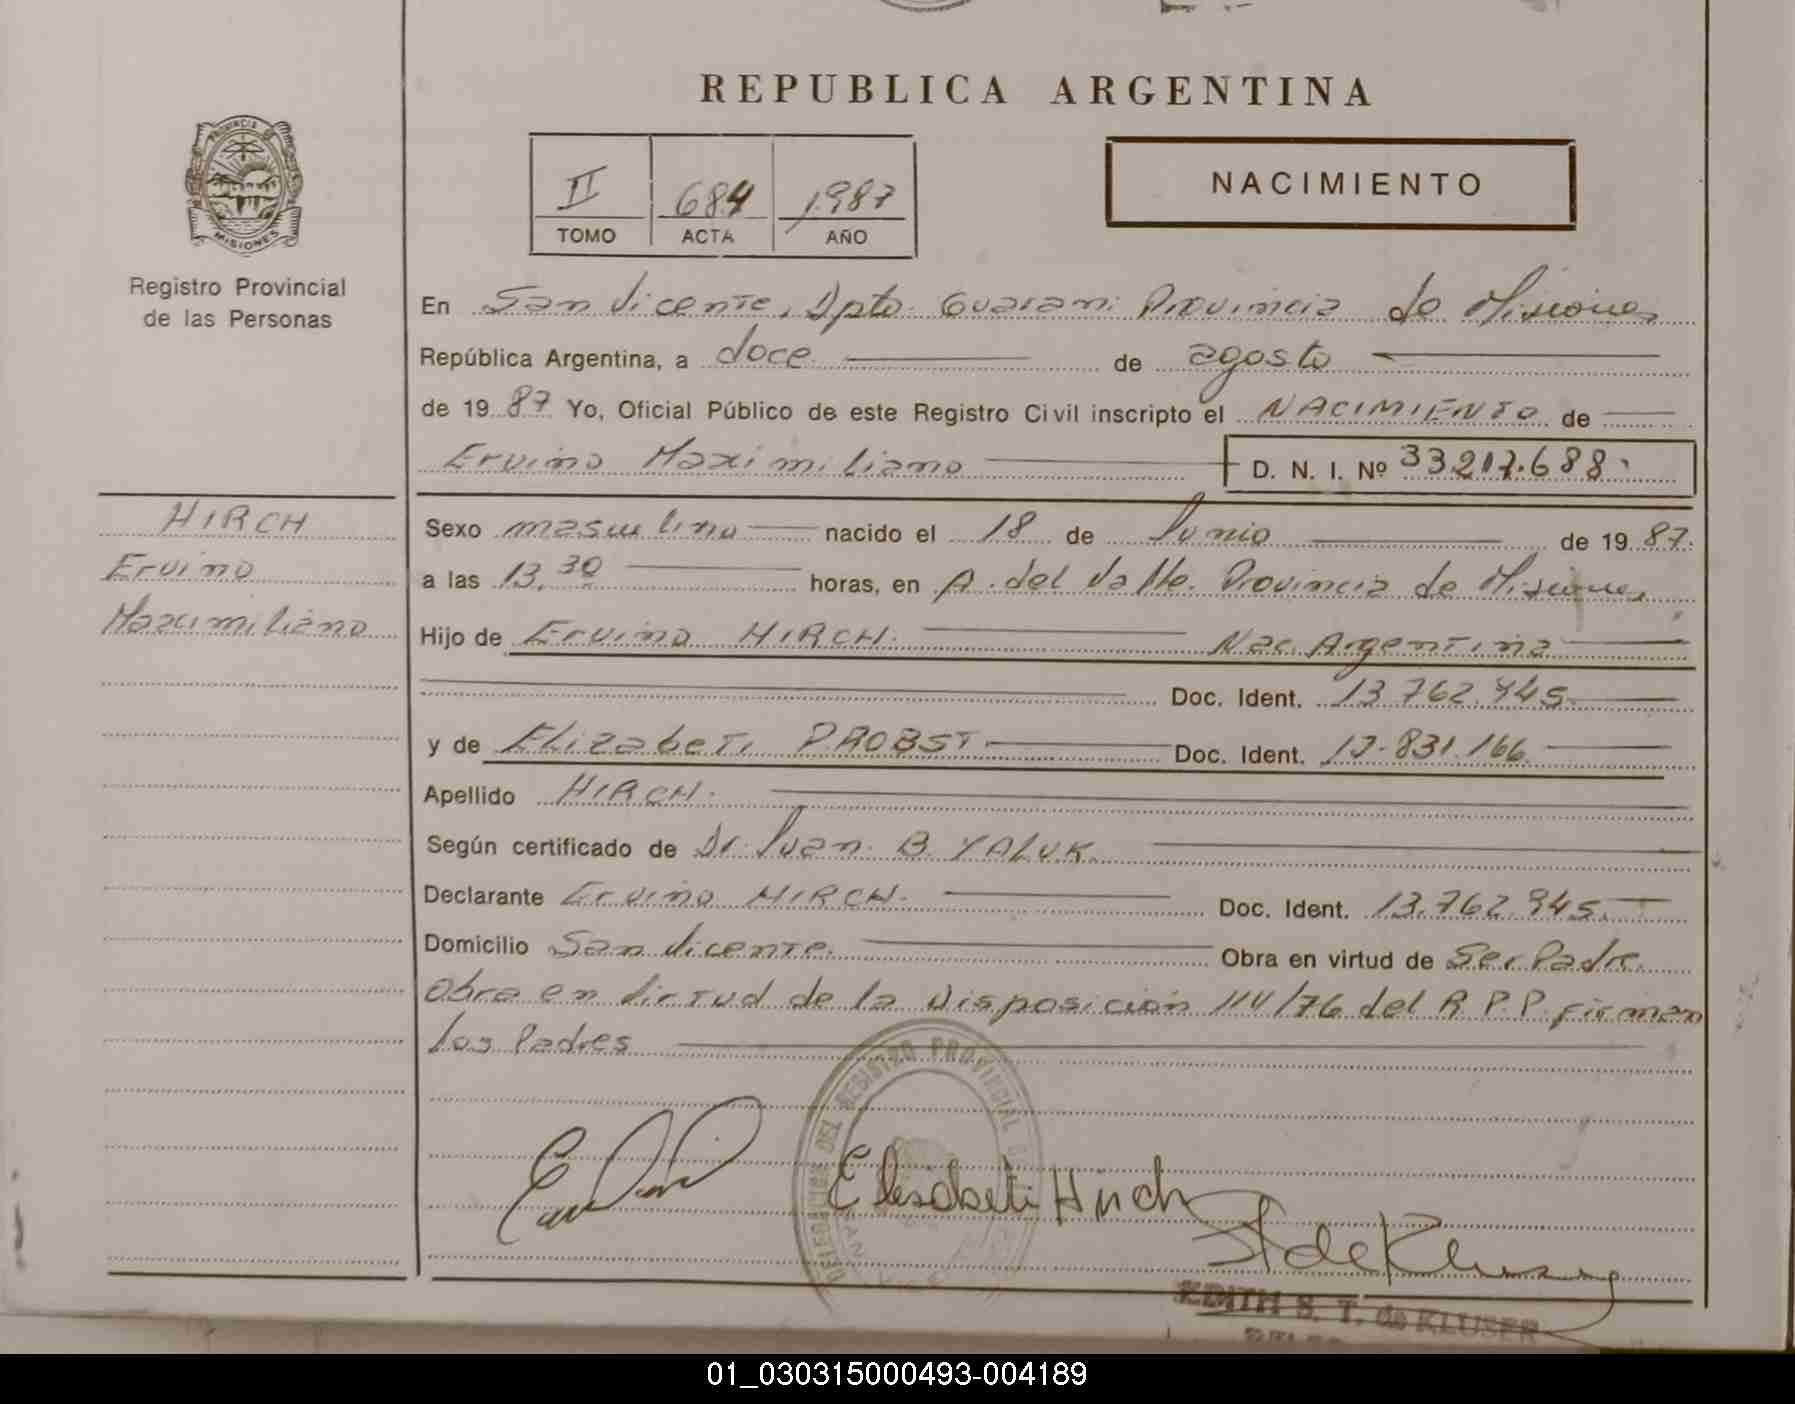 REPUBLICA ARGENTINA
PROVINCIA DE
MISIONES
Registro Provincial
de las Personas
II 684 1987
TOMO ACTA AÑO
NACIMIENTO
En San Vicente, Dpto. Guarani Provincia de Misiones
República Argentina, a doce de agosto
de 1987 Yo, Oficial Público de este Registro Civil inscripto el NACIMIENTO de
Ervino Maximiliano D. N. I. Nº 33217.688.
HIRCH
Ervino
Maximiliano
Sexo masculino nacido el 18 de Junio de 1987.
a las 13,30 horas, en A. del Valle. Provincia de Misiones
Hijo de Ervino HIRCH. Nac. Argentina
Doc. Ident. 13.762.945.
y de Elizabeti PROBST Doc. Ident. 17.831.166.
Apellido HIRCH.
Según certificado de Dr. Juan B. YALUK.
Declarante Ervino HIRCH. Doc. Ident. 13.762.945.
Domicilio San Vicente. Obra en virtud de Ser Padre.
Obra en virtud de la Disposición 114/76 del R.P.P. firman
los Padres
DELEGACION DEL REGISTRO PROVINCIAL D
Elisabeti Hirch
S T de Kluser
EDITH S. T. de KLUSER
01_030315000493-004189